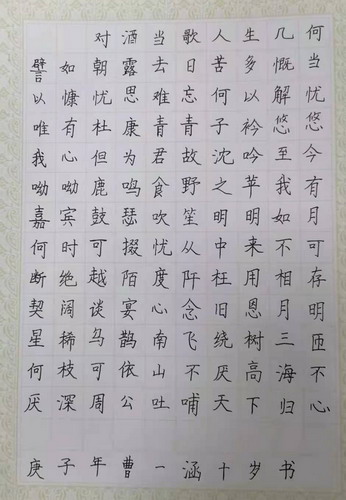 对酒当歌人生几何
譬如朝露去日苦多慨当
以慷忧思难忘何以解忧
唯有杜康青青子衿悠悠
我心但为君故沈吟至今
呦呦鹿鸣食野之苹我有
嘉宾鼓瑟吹笙明明如月
何时可掇忧从中来不可
断绝越陌度阡枉用相存
契阔谈宴心念旧恩月明
星稀乌鹊南飞绕树三匝
何枝可依山不厌高海不
厌深周公吐哺天下归心
庚子年曹一涵十岁书